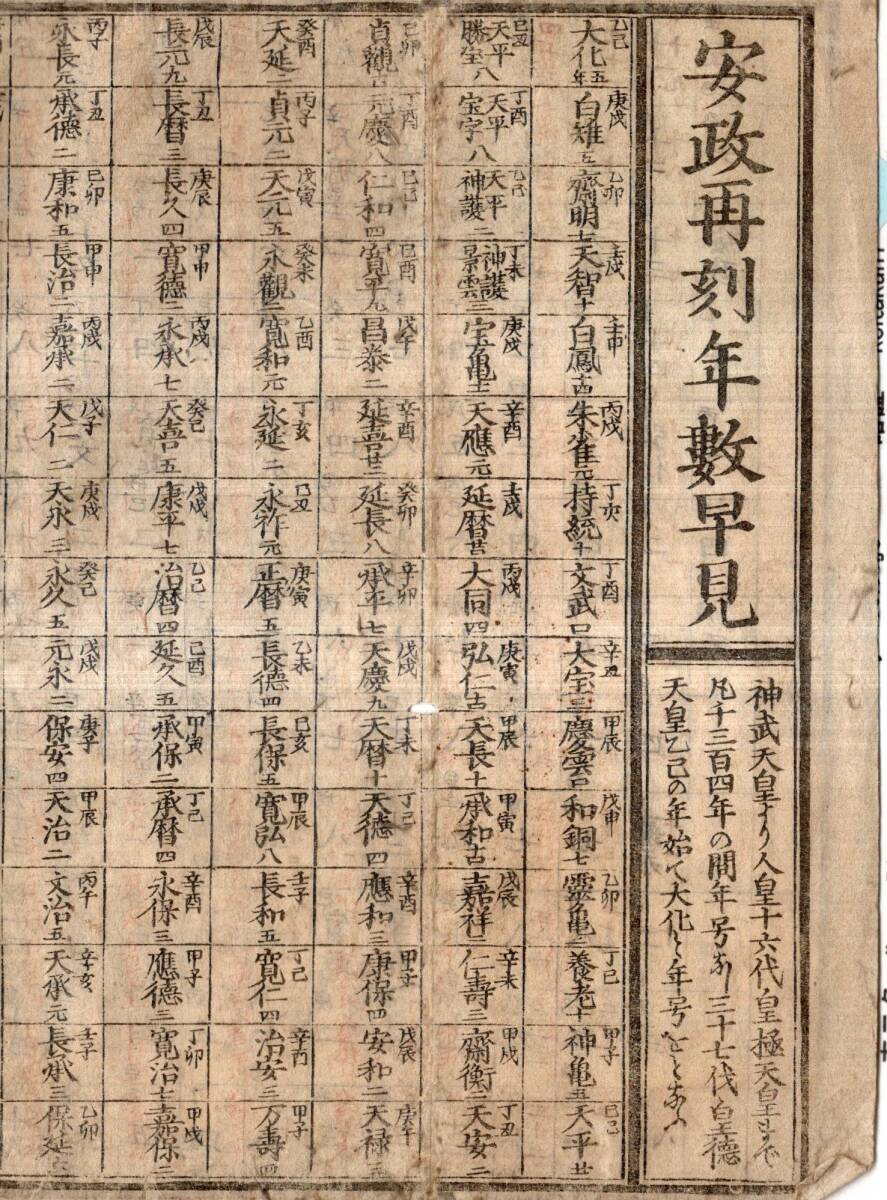 安政再刻年數早見
神武天皇より人皇十六代皇極天皇まで
凡千三百四年の間年号なし三十七代皇德
天皇乙己の年始て大化と年号をとなふ
乙己 大化五年
庚戌 白雉五
乙卯 齋明七
壬戌 天智十
壬申 白鳳十四
丙戌 朱雀元
丁亥 持統十
丁酉 文武四
辛丑 大宝三
甲辰 慶雲四
戊申 和銅七
乙卯 靈亀二
丁巳 養老七
甲子 神亀五
己巳 天平廿
己丑 天平勝宝八
丁酉 天平宝字八
乙己 天平神護二
丁未 神護景雲三
庚戌 宝亀十一
辛酉 天應元
壬戌 延暦廿四
丙戌 大同四
庚寅 弘仁十四
甲辰 天長十
甲寅 承和十四
戊辰 嘉祥三
辛未 仁壽三
甲戌 齋衡三
丁丑 天安二
己卯 貞觀
丁酉 元慶八
乙己 仁和四
己酉 寛平九
戊午 昌泰二
辛酉 延喜廿二
癸卯 延長八
辛卯 承平七
戊戌 天慶九
丁未 天暦十
丁己 天德四
辛酉 應和三
甲子 康保四
戊辰 安和二
庚午 天禄三
癸酉 天延三
丙子 貞元二
戊寅 天元五
癸未 永觀二
乙酉 寛和元
丁亥 永延二
己丑 永祚元
庚寅 正暦五
乙未 長德四
己亥 長保五
甲辰 寛弘八
壬子 長和五
丁己 寛仁四
辛酉 治安三
甲子 万壽四
戊辰 長元九
丁丑 長暦三
庚辰 長久四
甲申 寛德二
丙戌 永承七
癸己 天喜五
戊戌 康平七
乙己 治暦四
己酉 延久五
甲寅 承保三
丁己 承暦四
辛酉 永保三
甲子 應德三
丁卯 寛治七
甲戌 嘉保二
丙子 永長元
丁丑 承德二
己卯 康和五
甲申 長治二
丙戌 嘉承二
戊子 天仁二
庚戌 天永三
癸己 永久五
戊戌 元永二
庚子 保安四
甲辰 天治二
丙午 文治五
辛亥 天承元
壬子 長承三
乙卯 保延六